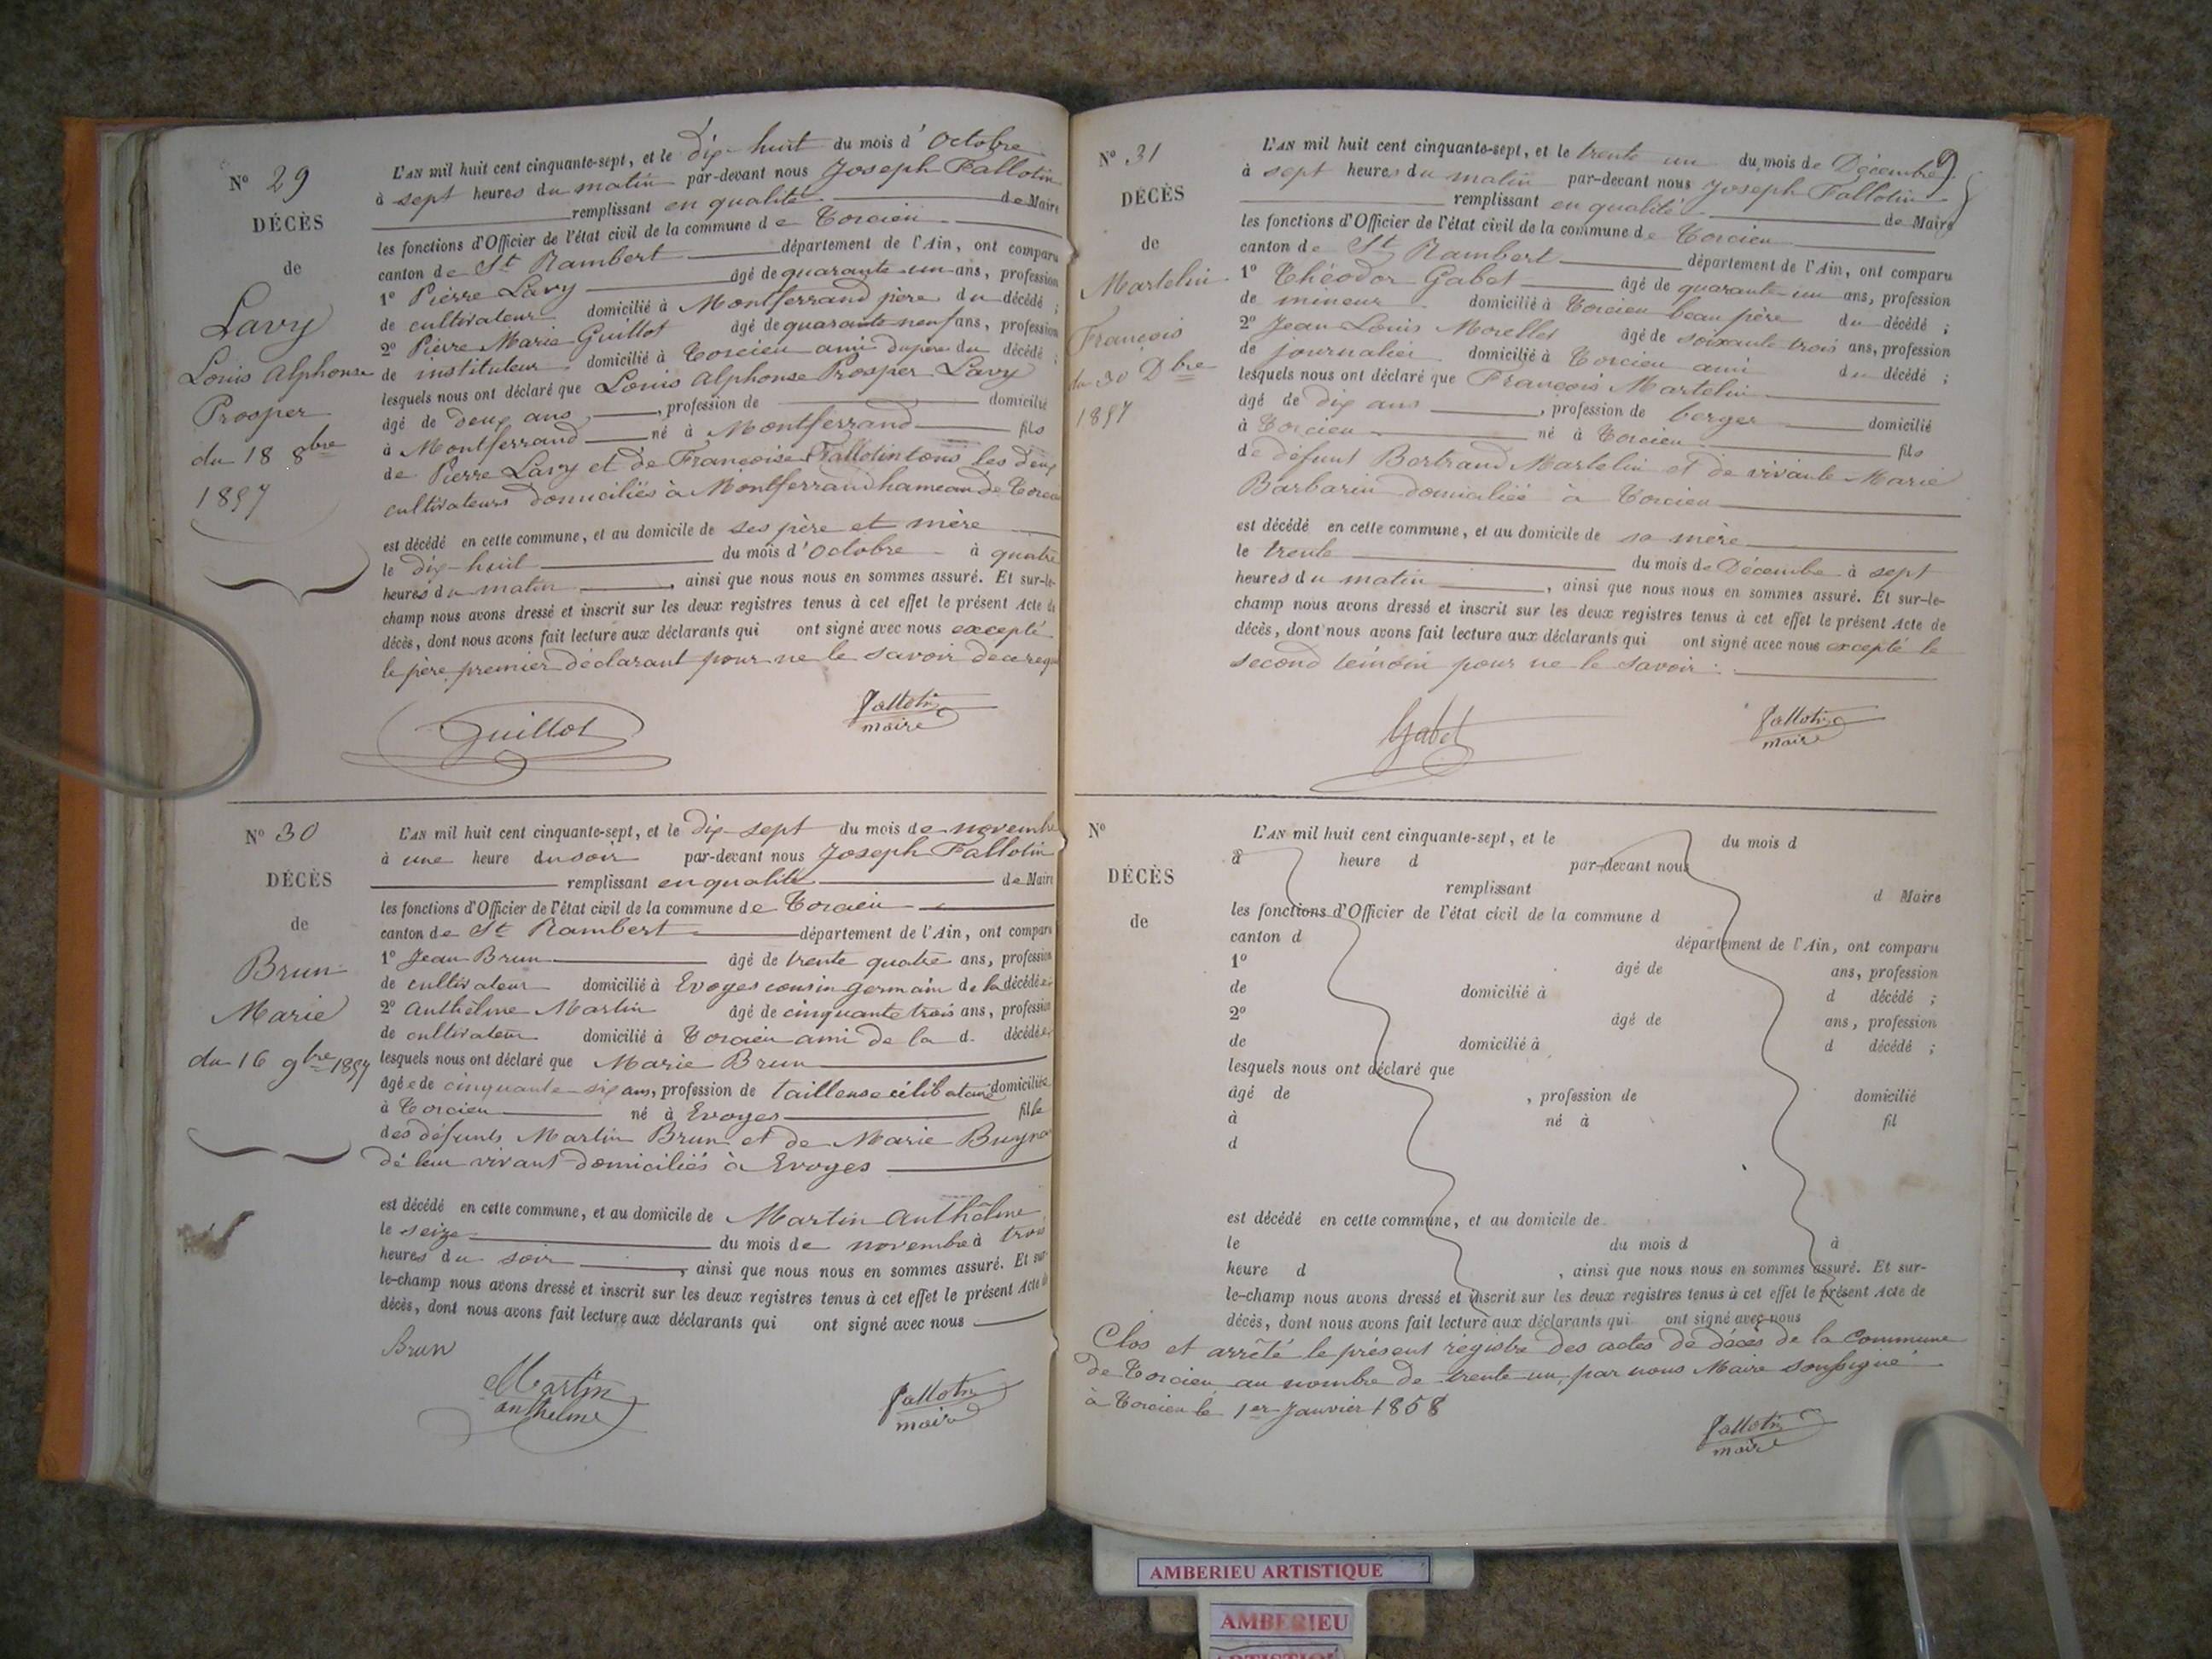 N° 29
DÉCÈS
de
Lavy
Louis Alphonse
Prosper
du 18 8bre
1857
L'AN mil huit cent cinquante-sept, et le dix-huit du mois d'Octobre
à sept heures du matin par-devant nous Joseph Fallotin
remplissant en qualité de Maire
les fonctions d'Officier de l'état civil de la commune de Torcieu
canton de St Rambert département de l'Ain, ont comparu
1° Pierre Lavy âgé de quarante un ans, profession
de cultivateur domicilié à Montferrand père du décédé ;
2° Pierre Marie Guillot âgé de quarante neuf ans, profession
de instituteur domicilié à Torcieu ami du père du décédé ;
lesquels nous ont déclaré que Louis Alphonse Prosper Lavy
âgé de deux ans, profession de domicilié
à Montferrand né à Montferrand fils
de Pierre Lavy et de Françoise Fallotin tous les deux
cultivateurs domiciliés à Montferrand hameau de Torcieu
est décédé en cette commune, et au domicile de ses père et mère
le dix-huit du mois d'Octobre à quatre
heures du matin, ainsi que nous nous en sommes assuré. Et sur-le-
champ nous avons dressé et inscrit sur les deux registres tenus à cet effet le présent Acte de
décès, dont nous avons fait lecture aux déclarants qui ont signé avec nous excepté
le père premier déclarant pour ne le savoir de ce requ
Guillot
Fallotin
maire
N° 30
DÉCÈS
de
Brun
Marie
du 16 9bre 1857
L'AN mil huit cent cinquante-sept, et le dix-sept du mois de novembre
à une heure du soir par-devant nous Joseph Fallotin
remplissant en qualité de Maire
les fonctions d'Officier de l'état civil de la commune de Torcieu
canton de St Rambert département de l'Ain, ont comparu
1° Jean Brun âgé de trente quatre ans, profession
de cultivateur domicilié à Evoges cousin germain de la décédée
2° Anthelme Martin âgé de cinquante trois ans, profession
de cultivateur domicilié à Torcieu ami de la d. décédée
lesquels nous ont déclaré que Marie Brun
âgée de cinquante-six ans, profession de tailleuse célibataire domiciliée
à Torcieu né à Evoges fille
des défunts Martin Brun et de Marie
de leur vivant domiciliés à Evoges
est décédé en cette commune, et au domicile de Martin Anthelme
le seize du mois de novembre à trois
heures du soir, ainsi que nous nous en sommes assuré. Et sur
le-champ nous avons dressé et inscrit sur les deux registres tenus à cet effet le présent Acte de
décès, dont nous avons fait lecture aux déclarants qui ont signé avec nous
Brun
Martin
anthelme
Fallotin
maire
N° 31
DÉCÈS
de
Martelin
François
du 30 Dbre
1857
L'AN mil huit cent cinquante-sept, et le trente un du mois de Décembre
à sept heures du matin par-devant nous Joseph Fallotin
remplissant en qualité de Maire
les fonctions d'Officier de l'état civil de la commune de Torcieu
canton de St Rambert département de l'Ain, ont comparu
1° Théodor Gabet âgé de quarante un ans, profession
de mineur domicilié à Torcieu beau père du décédé ;
2° Jean Louis Morellet âgé de soixante trois ans, profession
de journalier domicilié à Torcieu ami du décédé ;
lesquels nous ont déclaré que François Martelin
âgé de dix ans, profession de berger domicilié
à Torcieu né à Torcieu fils
de défunt Bertrand Martelin et de vivante Marie
Barbarin domiciliée à Torcieu
est décédé en cette commune, et au domicile de sa mère
le trente du mois de Décembre à sept
heures du matin, ainsi que nous nous en sommes assuré. Et sur-le-
champ nous avons dressé et inscrit sur les deux registres tenus à cet effet le présent Acte de
décès, dont nous avons fait lecture aux déclarants qui ont signé avec nous excepté le
second témoin pour ne le savoir.
Gabet
Fallotin
maire
N°
DÉCÈS
de
L'AN mil huit cent cinquante-sept, et le du mois d
à heure d par-devant nous
remplissant d Maire
les fonctions d'Officier de l'état civil de la commune d
canton d département de l'Ain, ont comparu
1° âgé de ans, profession
de domicilié à d décédé ;
2° âgé de ans, profession
de domicilié à d décédé ;
lesquels nous ont déclaré que
âgé de , profession de domicilié
à né à fil
d
est décédé en cette commune, et au domicile de
le du mois d à
heure d , ainsi que nous nous en sommes assuré. Et sur-
le-champ nous avons dressé et inscrit sur les deux registres tenus à cet effet le présent Acte de
décès, dont nous avons fait lecture aux déclarants qui ont signé avec nous
Clos et arrêté le présent régistre des actes de décès de la Commune
de Torcieu au nombre de trente-un, par nous Maire soussigné
à Torcieu le 1er Janvier 1858
Fallotin
maire
AMBERIEU ARTISTIQUE
AMBERIEU
ARTISTIQUE